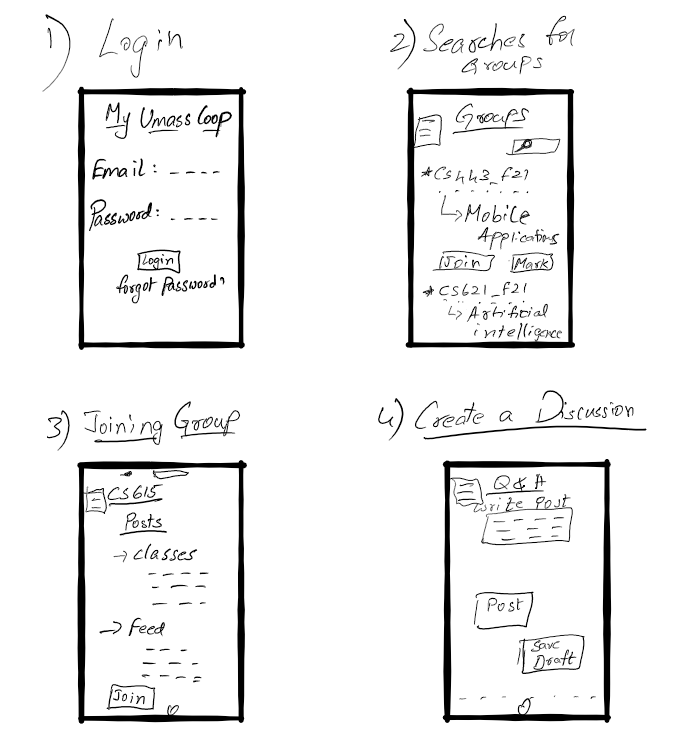 1) Login
My Umass Loop
Email: ----
Password: ----
Login
forgot Password?
2) Searches for
Groups
Groups
*CS443_f21
↳Mobile
Applications
Join Mark
*CS621_f21
↳Artificial
intelligence
3) Joining Group
CS615
Posts
→ classes
→ Feed
Join
4) Create a Discussion
Q & A
Write Post
Post
Save
Draft